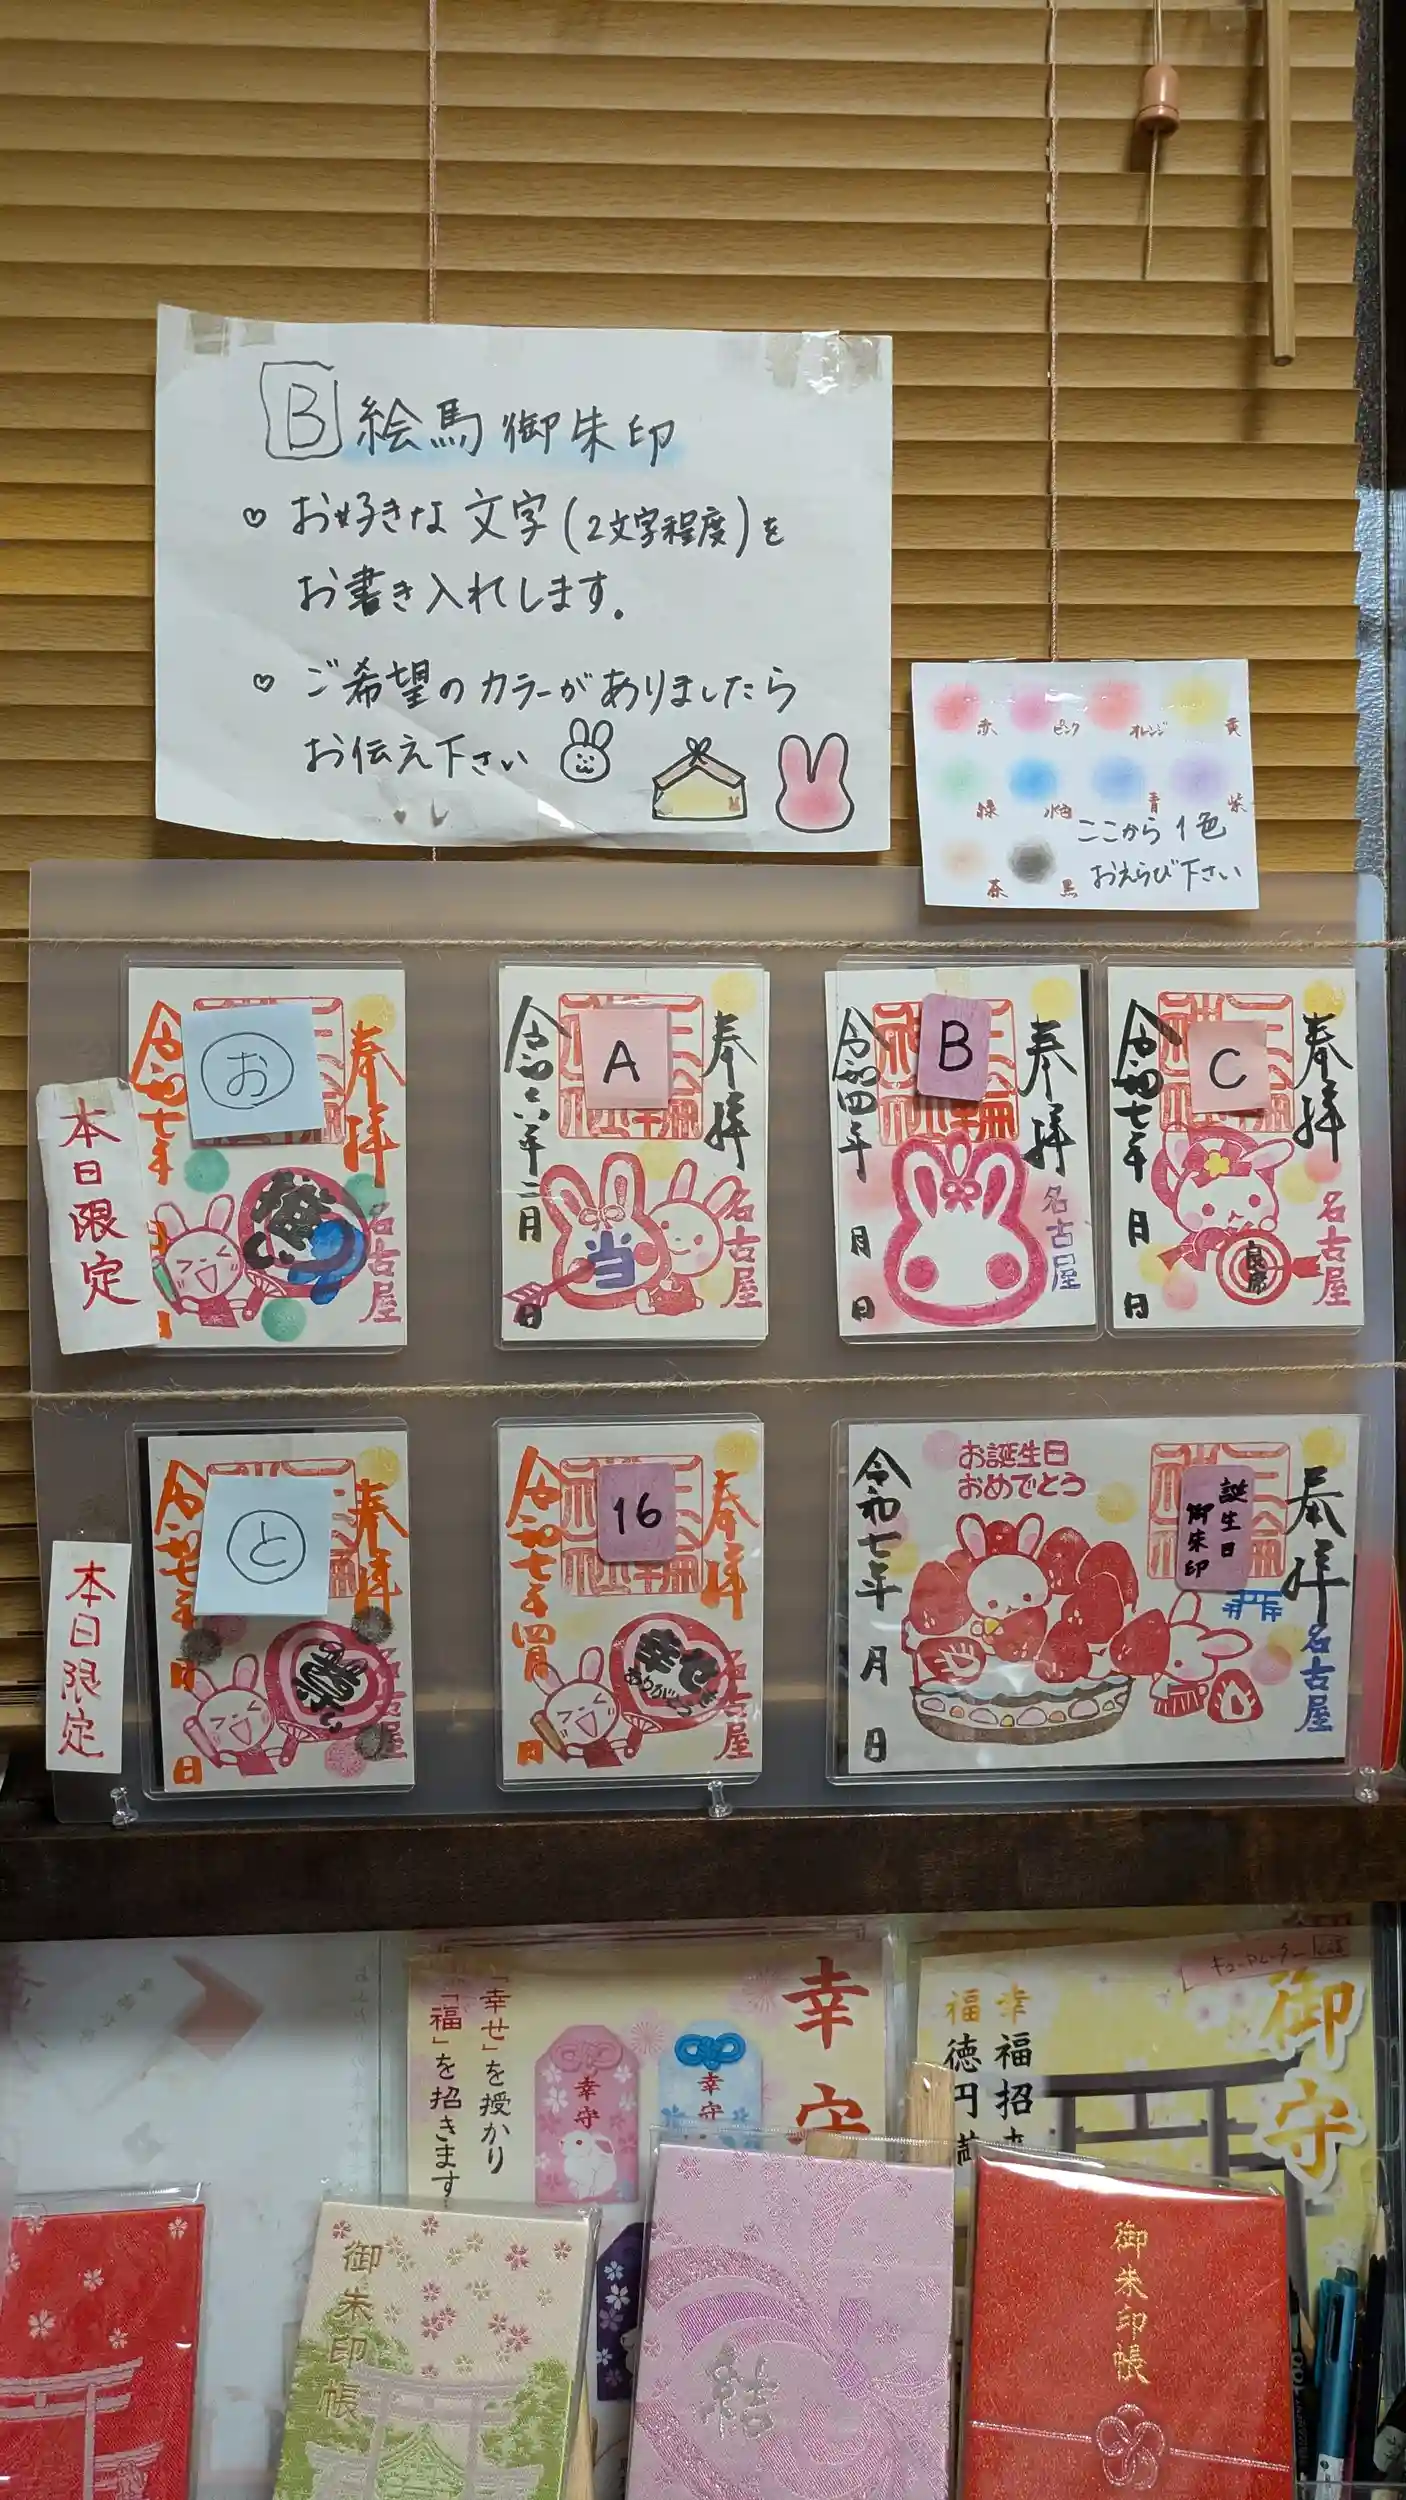 B 絵馬御朱印
♡ お好きな文字(2文字程度)を
お書き入れします.
♡ ご希望のカラーがありましたら
お伝え下さい
赤 ピンク オレンジ 黄
緑 水色 青 紫
茶 黒
ここから1色
おえらび下さい
本日限定
お
奉拝
令和七年
名古屋
A
奉拝
令和六年二月
日
当
名古屋
B
奉拝
令和四年
月
日
名古屋
C
奉拝
令和七年
月
日
良席
名古屋
本日限定
と
奉拝
令和七年
月
日
名古屋
16
奉拝
令和七年四月
日
幸せ
ありがとう
名古屋
お誕生日
おめでとう
誕生日
御朱印
奉拝
令和七年
月
日
名古屋
幸守
「幸せ」を授かり
「福」を招きます
幸守
幸守
キューアレーター
御守
幸福招
福徳円
御朱印帳
結
御朱印帳